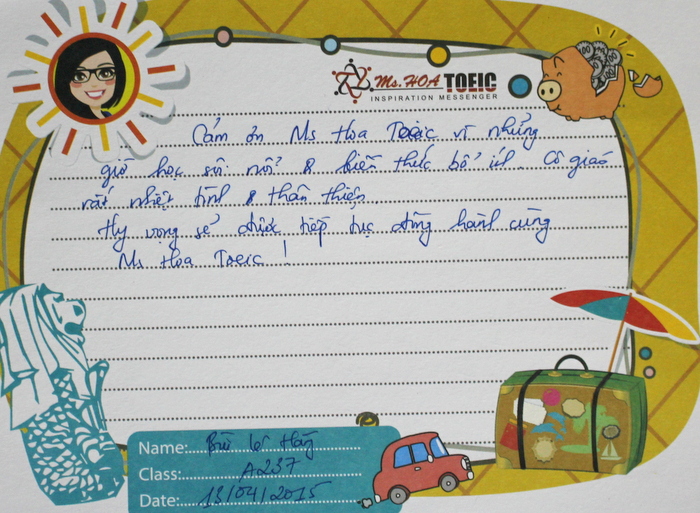 Ms. HOA TOEIC
INSPIRATION MESSENGER
Cảm ơn Ms Hoa Toeic vì những
giờ học sôi nổi & kiến thức bổ ích. Cô giáo
rất nhiệt tình & thân thiện
Hy vọng sẽ được tiếp tục đồng hành cùng
Ms Hoa Toeic !
Name: Hằng
Class: A237
Date: 13/04/2015